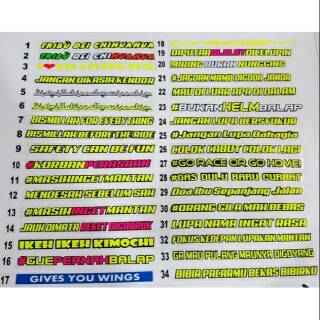 1 TRIBU DEI CHIHUAHUA
2 TRIBU DEI CHIHUAHUA
3
4 JANGAN DIKASIH KENDOR
5
6
7 BISMILLAH FOR EVERYTHING
8 BISMILLAH BEFORE THE RIDE
9 SAFETY CAN BE FUN
10 #KORBANPERASAAN
11 #MASIHINGETMANTAN
12 MENDESAH SEBELUM SAH
13 #MASIHINGETMANTAN
14 JAUH DIMATA DEKET DIGABRUK
15 IKEH IKEH KIMOCHI
16 #GUEPERNAHBALAP
17 GIVES YOU WINGS
18
19 DIPUTAR DIJILAT DICELUPIN
20 MIRING BUKAN NUNGGING
21 #JAGOAN MAMA DIGODA JANDA
22 MAU DI LUAR APA DI DALAM
23 #BUKANHELMBALAP
24 JANGAN LUPA BERSYUKUR
25 #Jangan Lupa Bahagia
26 COLOK CABUT COLOK LAGI
27 #GO RACE OR GO HOME!
28 #GAS DULU BARU GURHAT
29 Doa Ibu Sepanjang Jalan
30 #ORANG GILA MAH BEBAS
31 LUPA NAMA INGAT RASA
32 FOKUS KEDEPAN LUPAKAN MANTAN
33 GA MAU PULANG MAUNYA DIGOYANG
34 BIBIR PACARMU BEKAS BIBIRKU